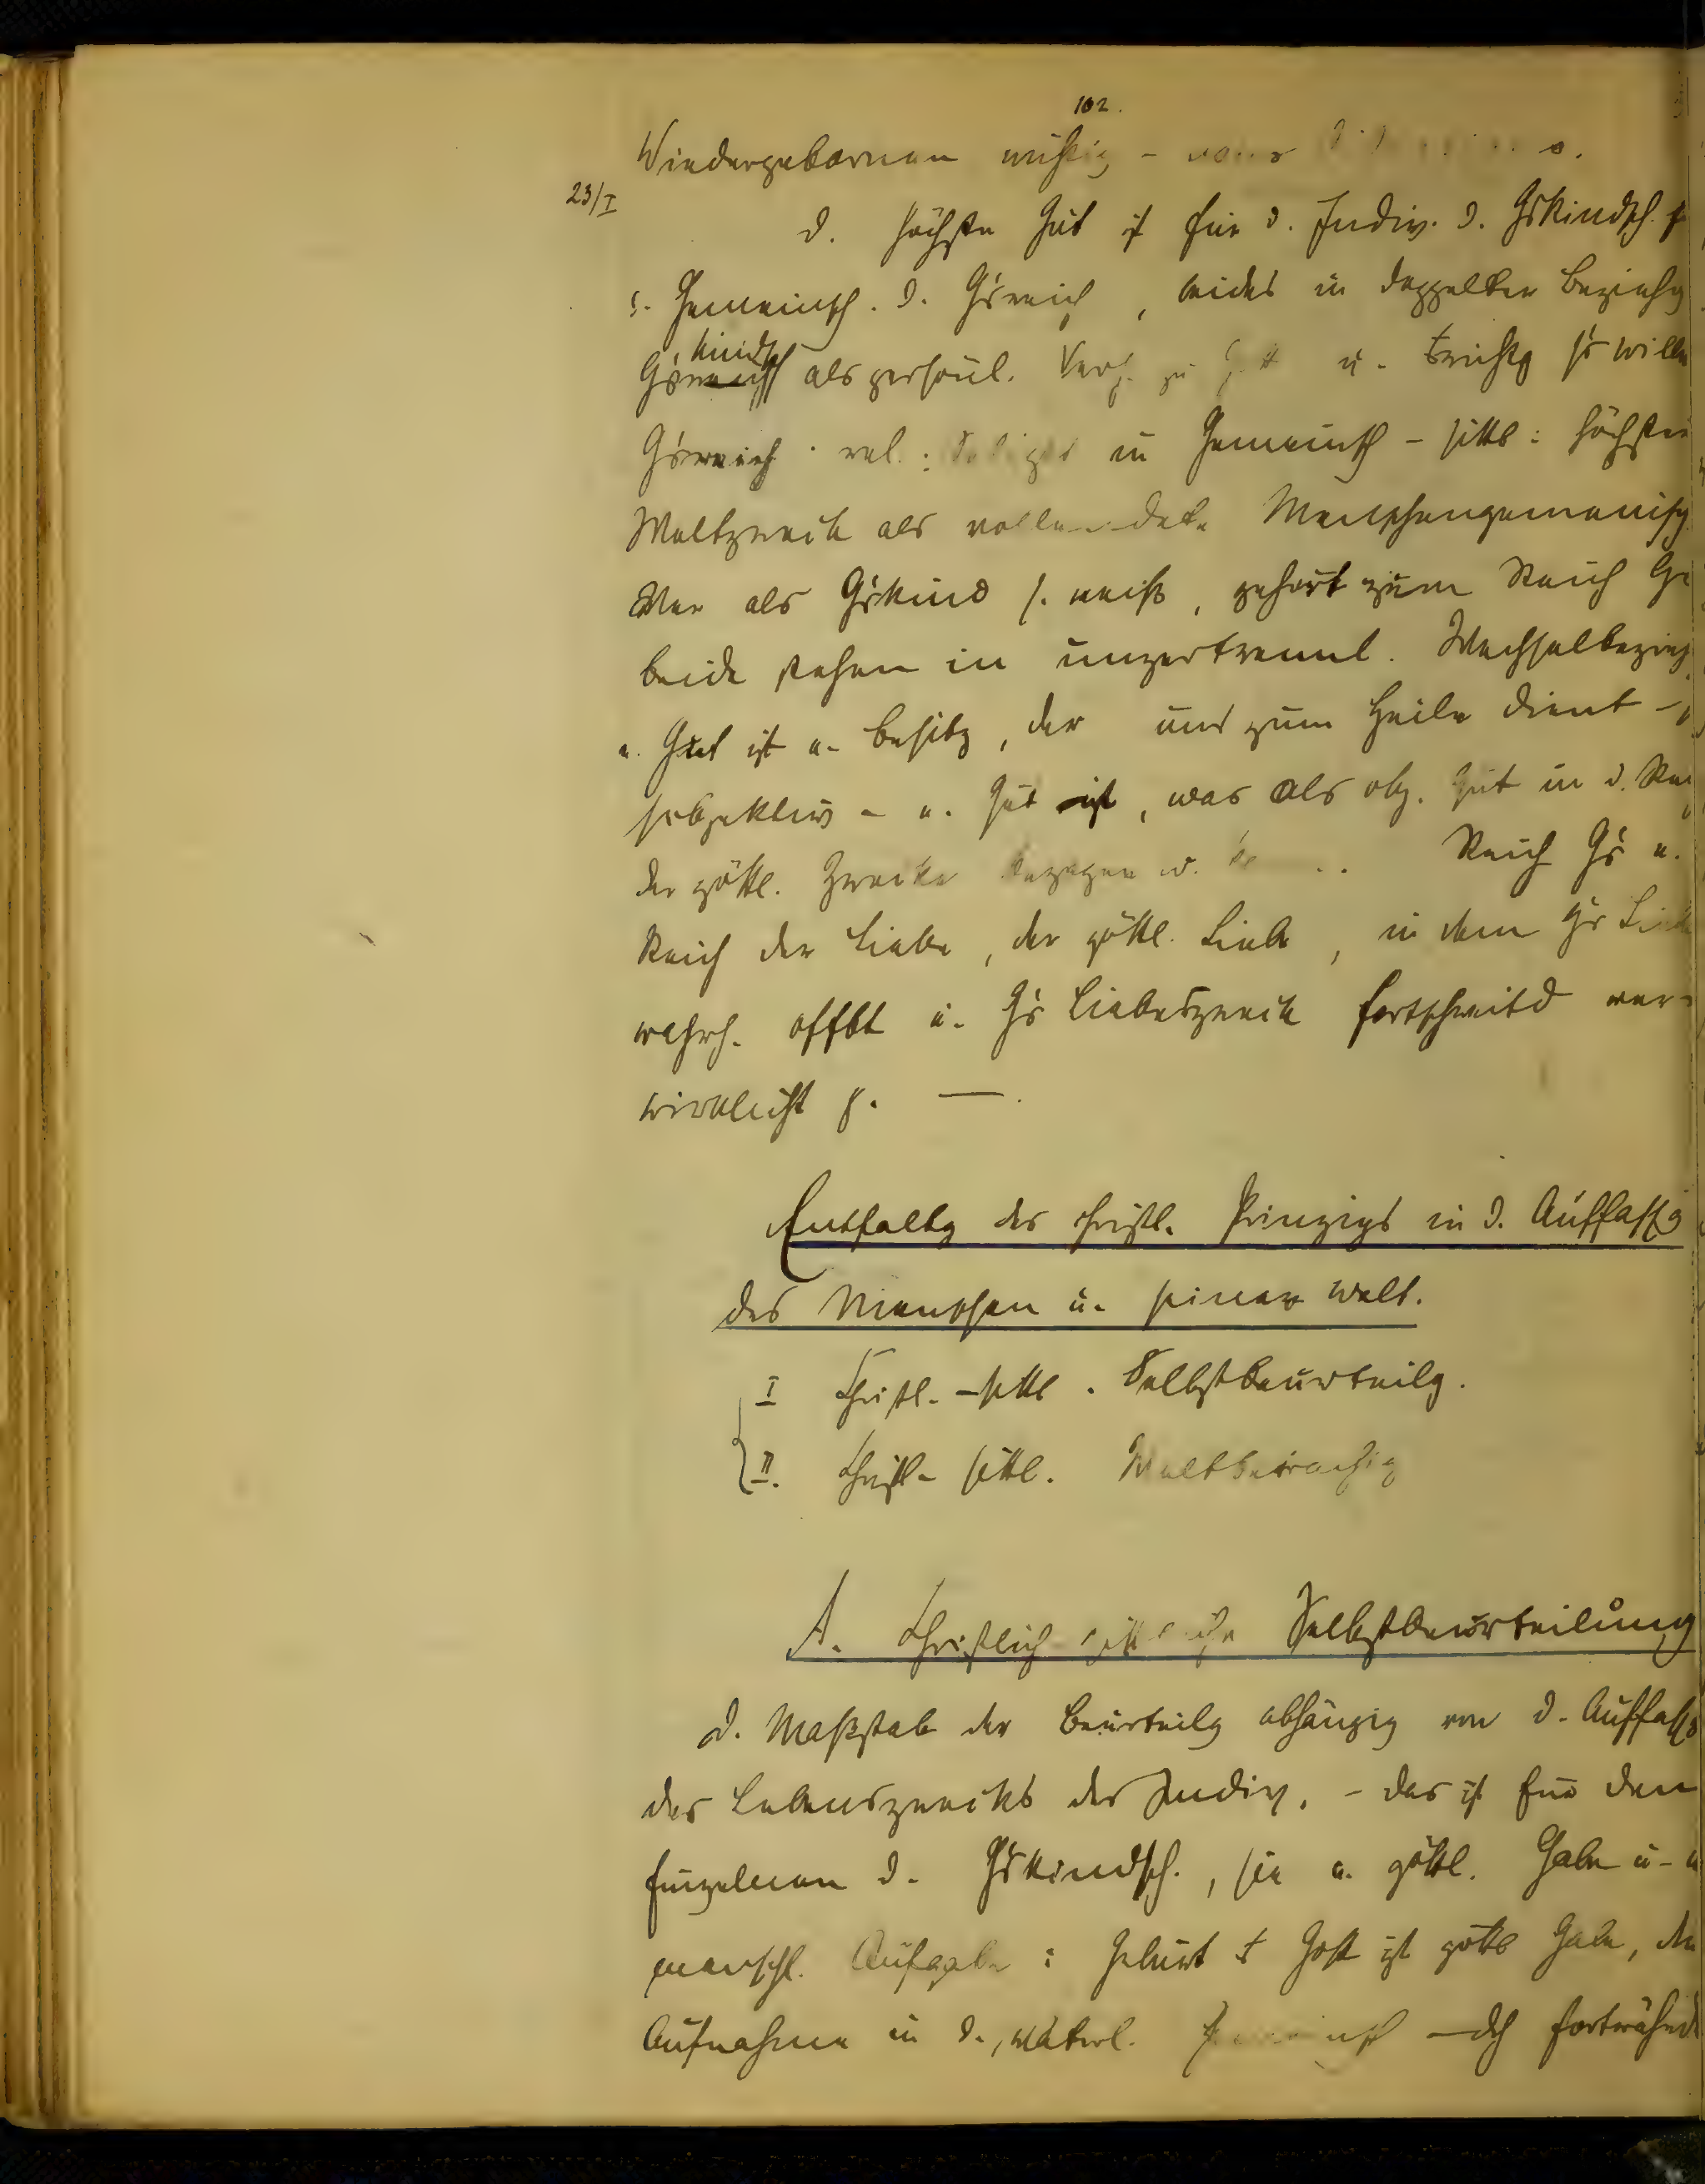 102.
Wiedergebornen wichtig -
23/I
d. höchste Gut ist für d. Indiv. d. Gskindsch. f
d. Gemeinsch. d. Gsreich, beides in doppelter Beziehg
Gskindsch als persönl. Verh. zu Gott u. Richtg s Wille
Gsreich rel.: in Gemeinsch - sittl: höchster
Weltzweck als vollendete Menschengemeinsch
Wer als Gskind s. weiß, gehört zum Reich Gs
beide stehen in unzertrennl. Wechselbezieh
e. Gut ist e. Besitz, der uns zum Heile dient -
subjektiv - e. Gut ist, was als obj. Gut in d. Rei
der göttl. Zwecke bezogen w. Reich Gs e.
Reich der Liebe, der göttl. Liebe, in dem Gs Liebe
wahrh. offbt u. Gs Liebeszweck fortschreitd ver-
wirklicht s. —.
Entfaltg des christl. Prinzips in d. Auffassg
des Menschen u. seiner Welt.
I Christl.-sittl. Selbstbeurteilg.
II. Christl-sittl. Weltbetrachtg
A. Christlich sittliche Selbstbeurteilung
D. Maßstab der Beurteilg abhängig von d. Auffassg
des Lebenszwecks des Indiv. - das ist für den
Einzelnen d. Gskindsch., sie e. göttl. Gabe u. e
menschl. Aufgabe: Geburt Gott ist göttl Gabe, die
Aufnahme in d. väterl. Gemeinsch - dch fortwährend